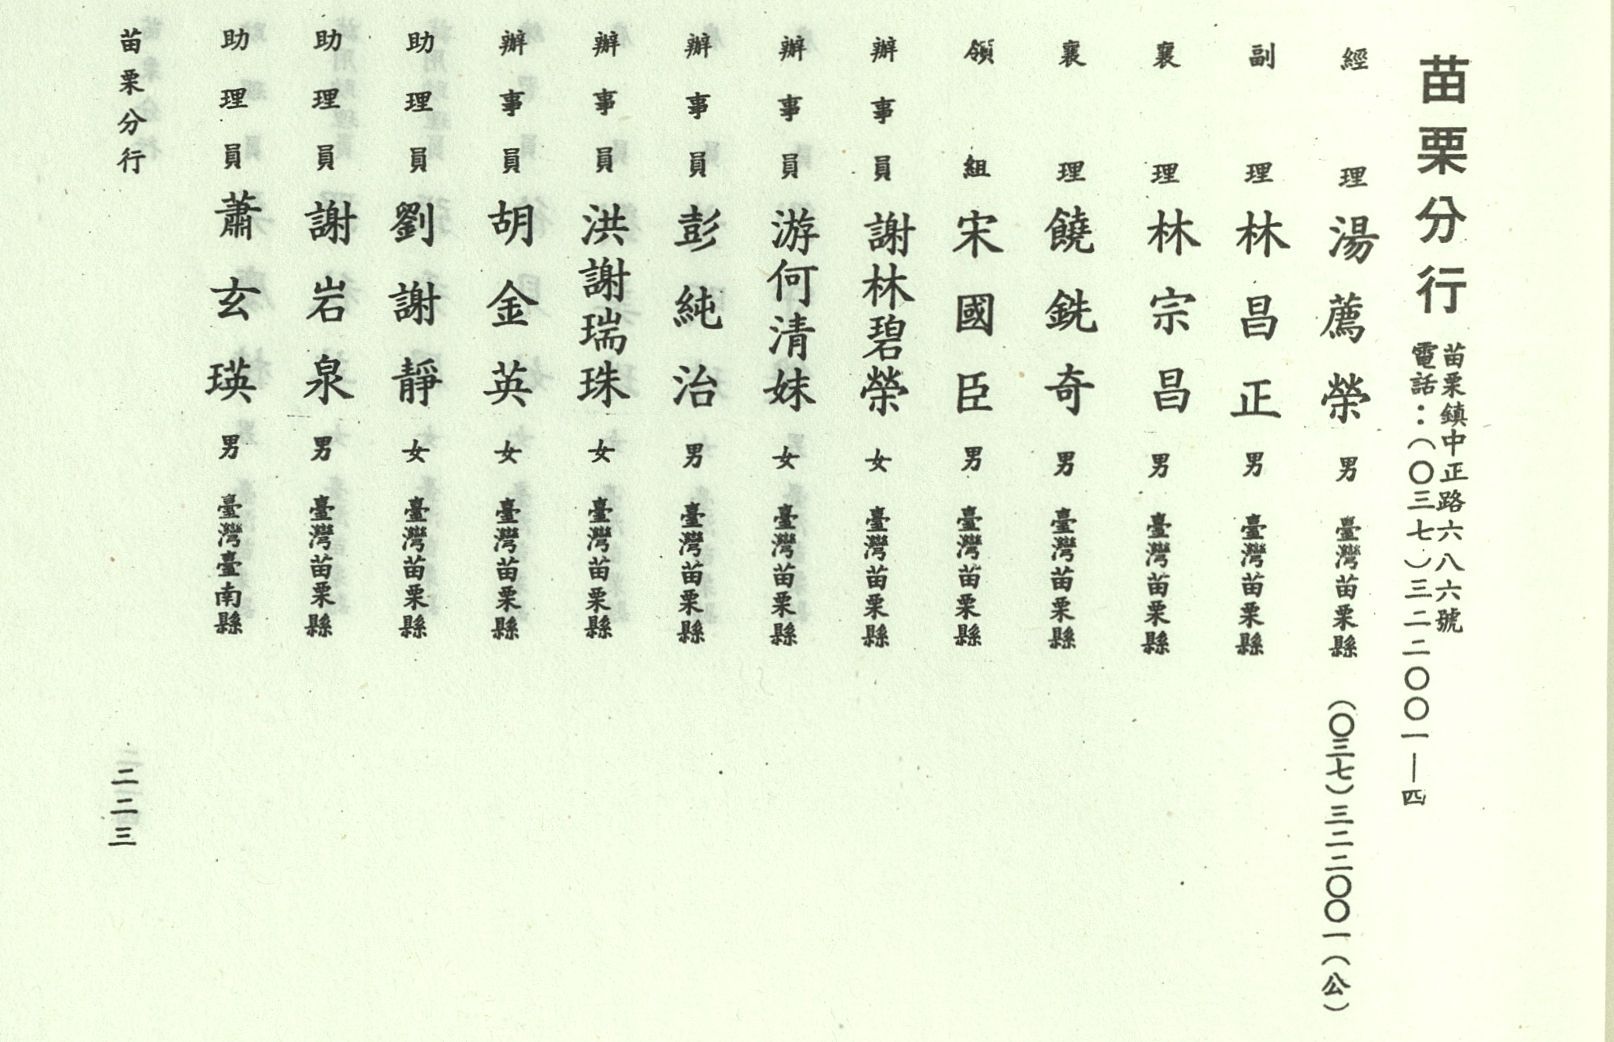 苗栗分行
苗栗鎮中正路六八六號
電話：（〇三七）三二二〇〇一—四
經理 湯薦榮 男 臺灣苗栗縣 （〇三七）三二二〇〇一（公）
副理 林昌正 男 臺灣苗栗縣
襄理 林宗昌 男 臺灣苗栗縣
襄理 饒銑奇 男 臺灣苗栗縣
領組 宋國臣 男 臺灣苗栗縣
辦事員 謝林碧榮 女 臺灣苗栗縣
辦事員 游何清妹 女 臺灣苗栗縣
辦事員 彭純治 男 臺灣苗栗縣
辦事員 洪謝瑞珠 女 臺灣苗栗縣
辦事員 胡金英 女 臺灣苗栗縣
助理員 劉謝靜 女 臺灣苗栗縣
助理員 謝岩泉 男 臺灣苗栗縣
助理員 蕭玄瑛 男 臺灣臺南縣
苗栗分行
二二三